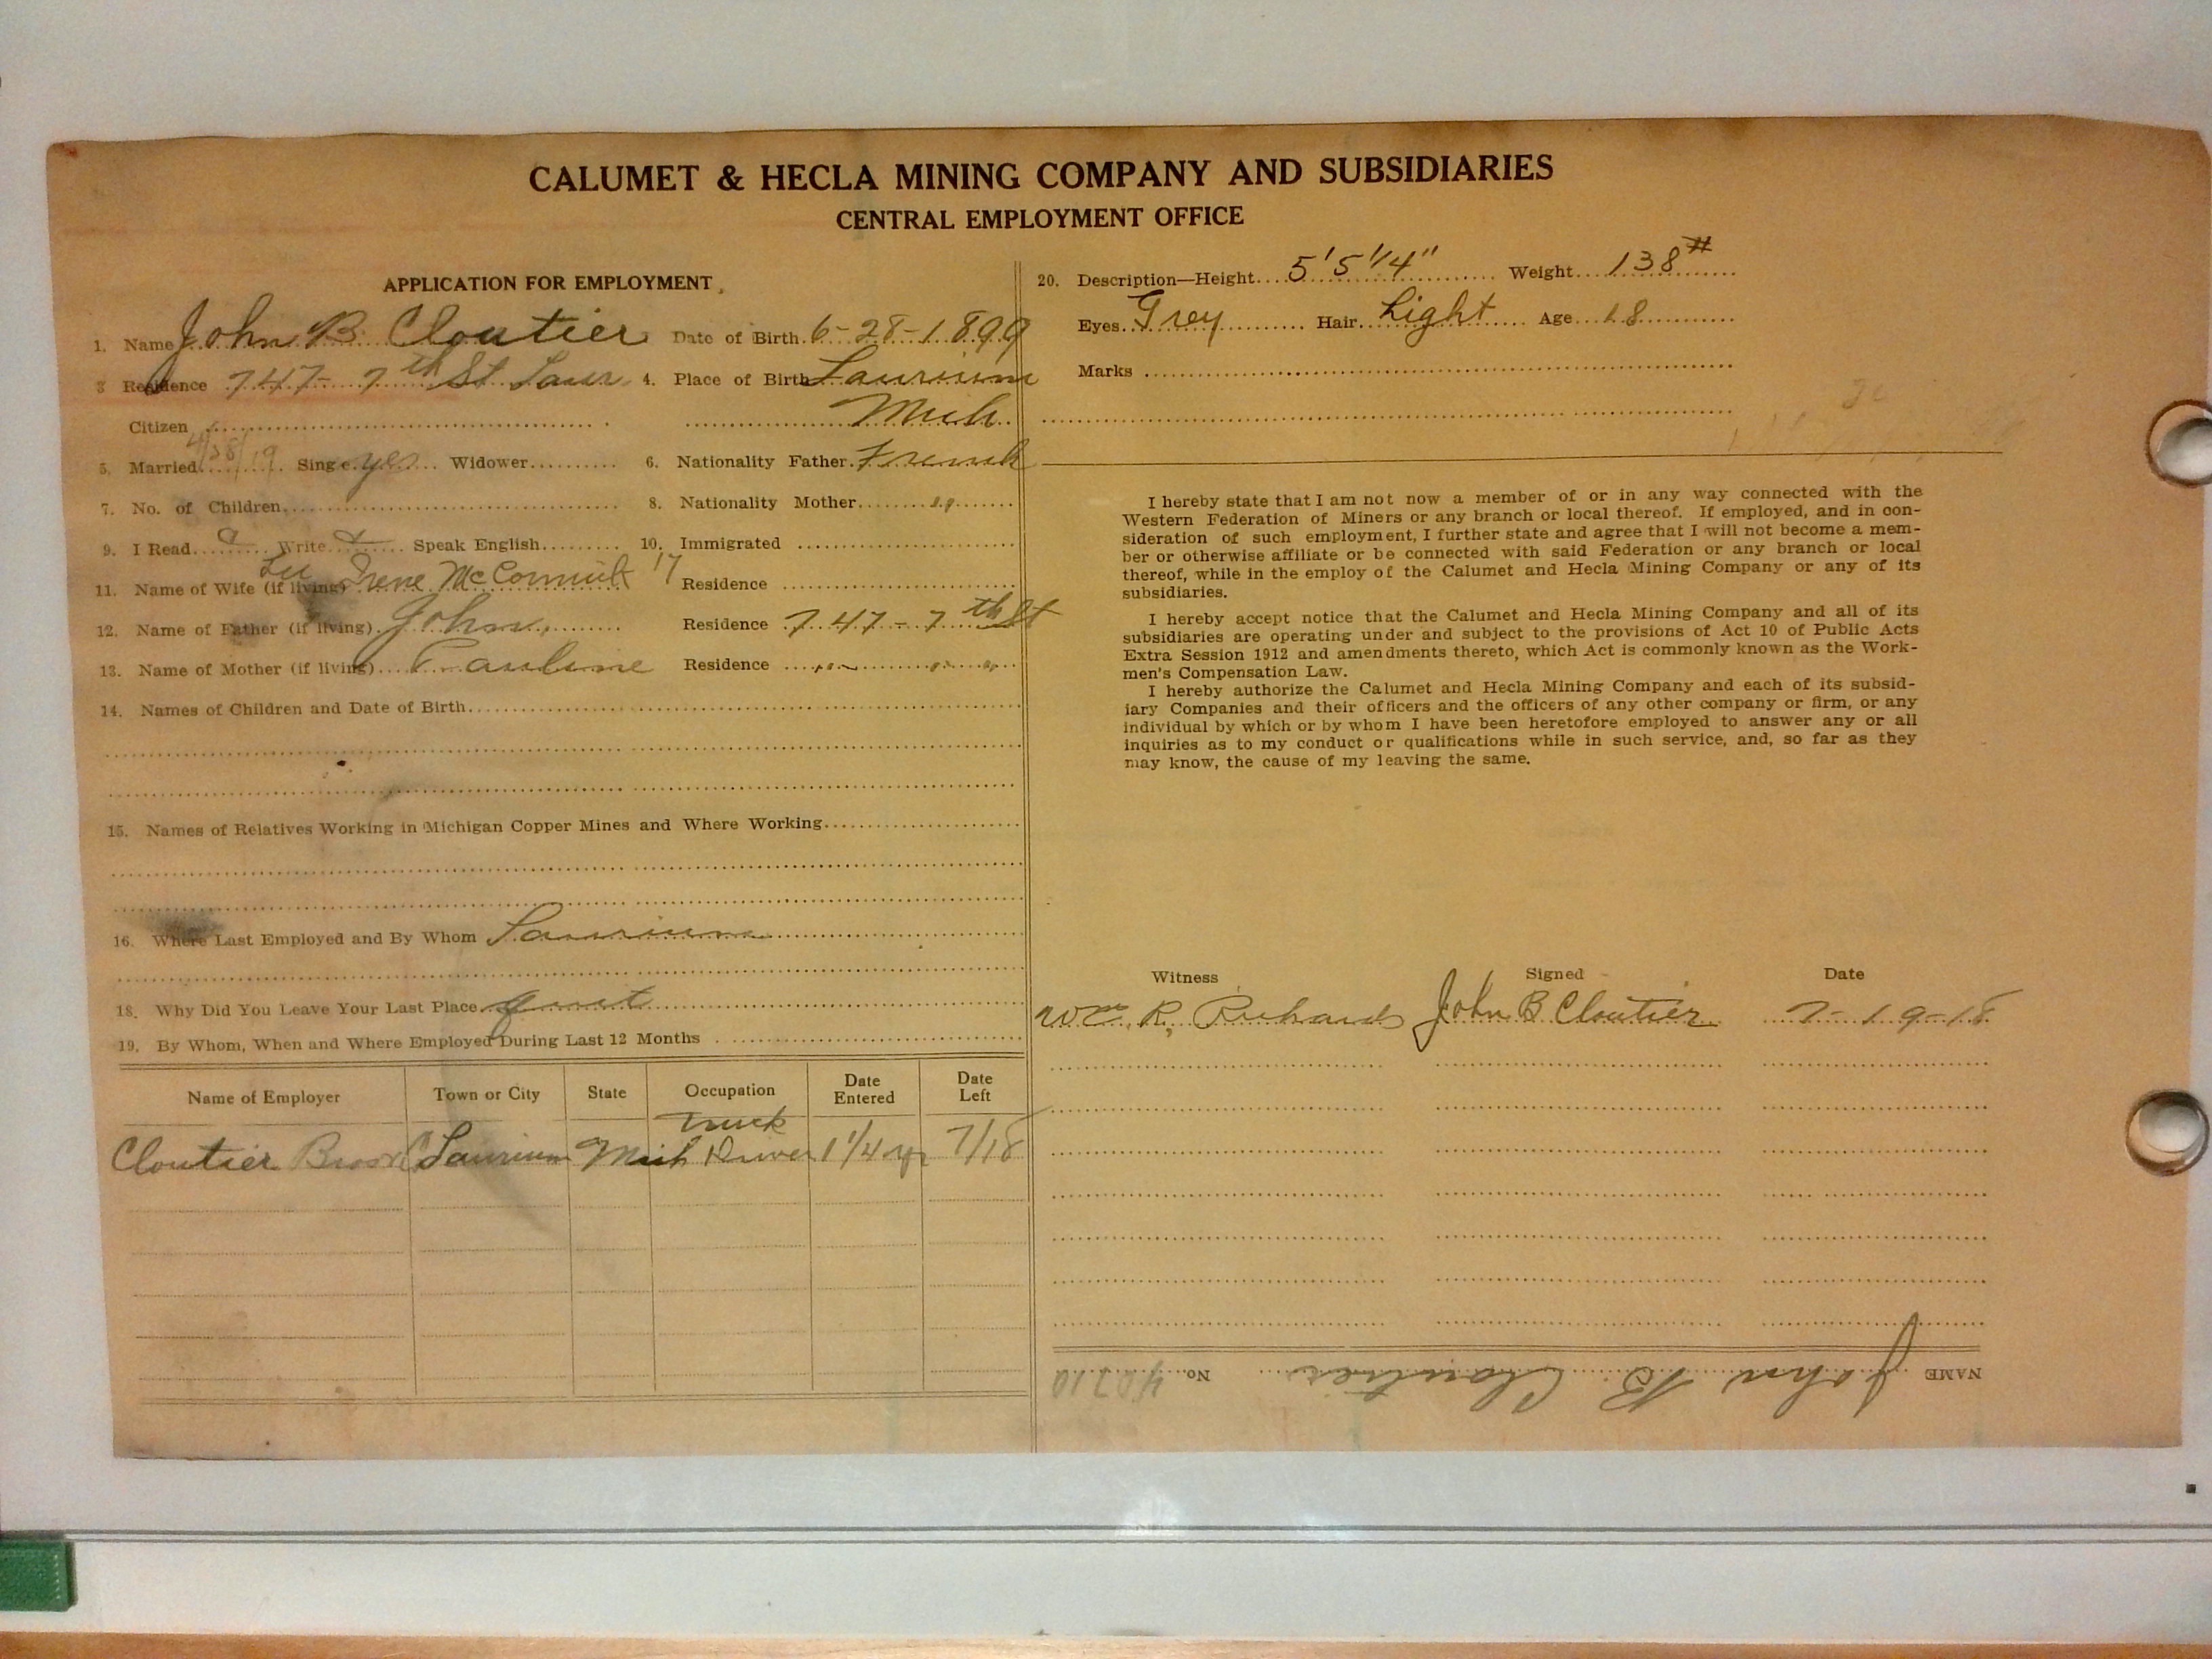 CALUMET & HECLA MINING COMPANY AND SUBSIDIARIES
CENTRAL EMPLOYMENT OFFICE
APPLICATION FOR EMPLOYMENT
1. Name John B Cloutier Date of Birth 6-28-1899
3 Residence 747- 7th St Laur 4. Place of Birth Laurium
Citizen Mich
5. Married 4/28/19 Single yes Widower 6. Nationality Father French
7. No. of Children 8. Nationality Mother "
9. I Read Write Speak English 10. Immigrated
11. Name of Wife (if living) Irene Residence
12. Name of Father (if living) John Residence 747-7th St
13. Name of Mother (if living) Pauline Residence " " "
14. Names of Children and Date of Birth
15. Names of Relatives Working in Michigan Copper Mines and Where Working
16. Where Last Employed and By Whom Laurium
18. Why Did You Leave Your Last Place quit
19. By Whom, When and Where Employed During Last 12 Months
Name of Employer Town or City State Occupation Date Entered Date Left
Cloutier Bros Laurium Mich Truck Driver 1 1/4 yr 7/18
20. Description—Height 5' 5 1/4" Weight 138#
Eyes Grey Hair Light Age 18
Marks
I hereby state that I am not now a member of or in any way connected with the
Western Federation of Miners or any branch or local thereof. If employed, and in con-
sideration of such employment, I further state and agree that I will not become a mem-
ber or otherwise affiliate or be connected with said Federation or any branch or local
thereof, while in the employ of the Calumet and Hecla Mining Company or any of its
subsidiaries.
I hereby accept notice that the Calumet and Hecla Mining Company and all of its
subsidiaries are operating under and subject to the provisions of Act 10 of Public Acts
Extra Session 1912 and amendments thereto, which Act is commonly known as the Work-
men's Compensation Law.
I hereby authorize the Calumet and Hecla Mining Company and each of its subsid-
iary Companies and their officers and the officers of any other company or firm, or any
individual by which or by whom I have been heretofore employed to answer any or all
inquiries as to my conduct or qualifications while in such service, and, so far as they
may know, the cause of my leaving the same.
Witness Signed Date
Wm. R. Richards John B Cloutier 7-19-18
NAME John B. Cloutier No.